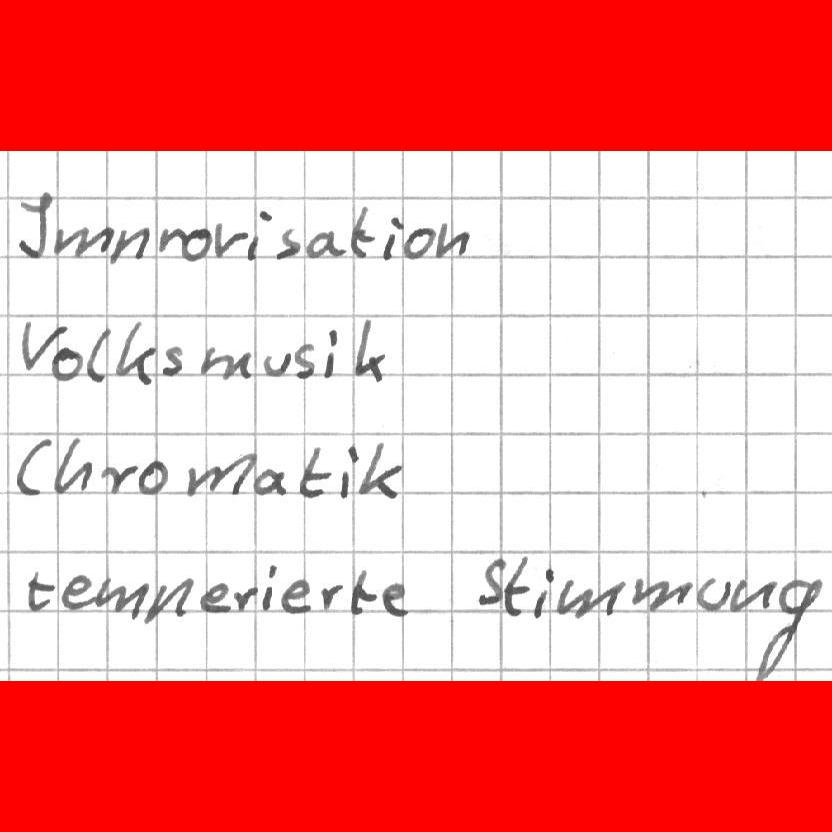 Improvisation
Volksmusik
Chromatik
temperierte Stimmung